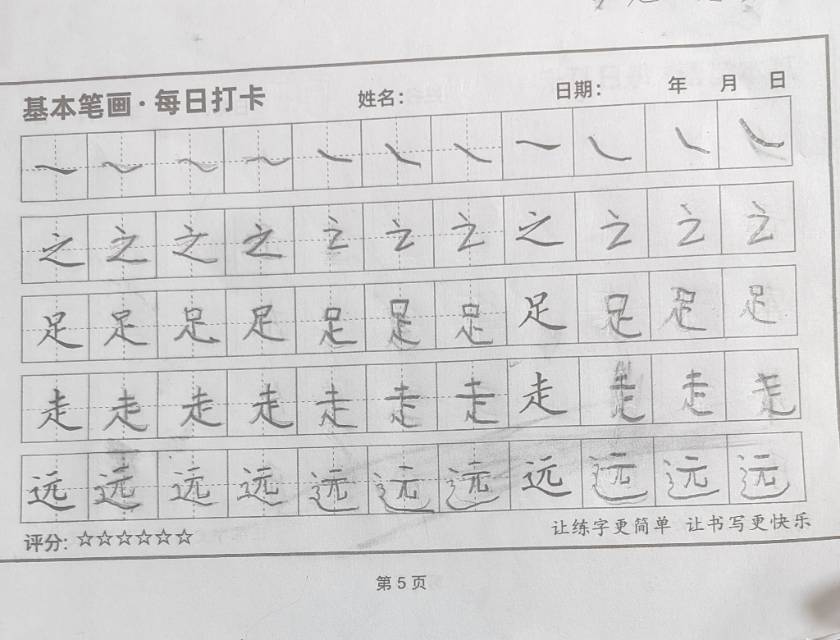 基本笔画·每日打卡 姓名: 日期: 年 月 日
之 之 之 之 之 之 之 之 之 之 之
足 足 足 足 足 足 足 足 足 足 足
走 走 走 走 走 走 走 走 走 走 走
远 远 远 远 远 远 远 远 远 远 远
评分: ☆☆☆☆☆☆ 让练字更简单 让书写更快乐
第 5 页